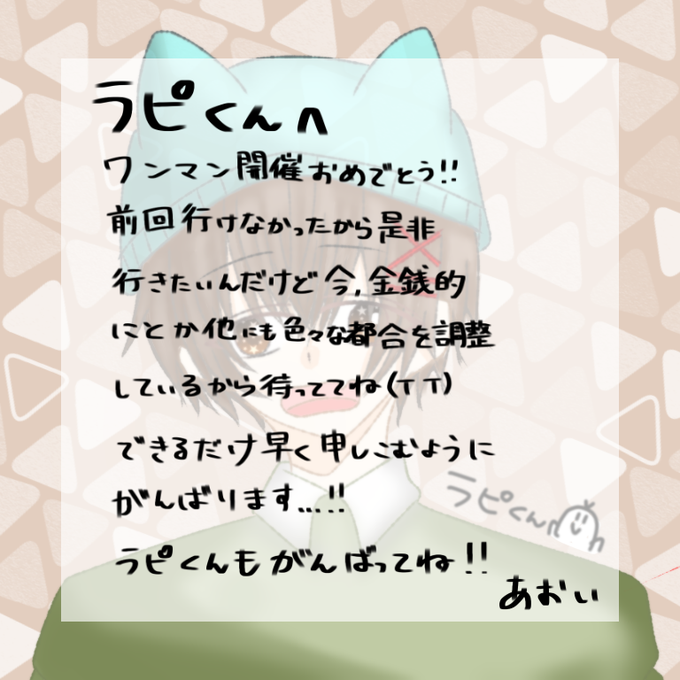 ラピくんへ
ワンマン開催おめでとう!!
前回行けなかったから是非
行きたいんだけど今,金銭的
にとか他にも色々な都合を調整
しているから待っててね(TT)
できるだけ早く申しこむように
がんばります...!!
ラピくん
ラピくんもがんばってね!!
あおい